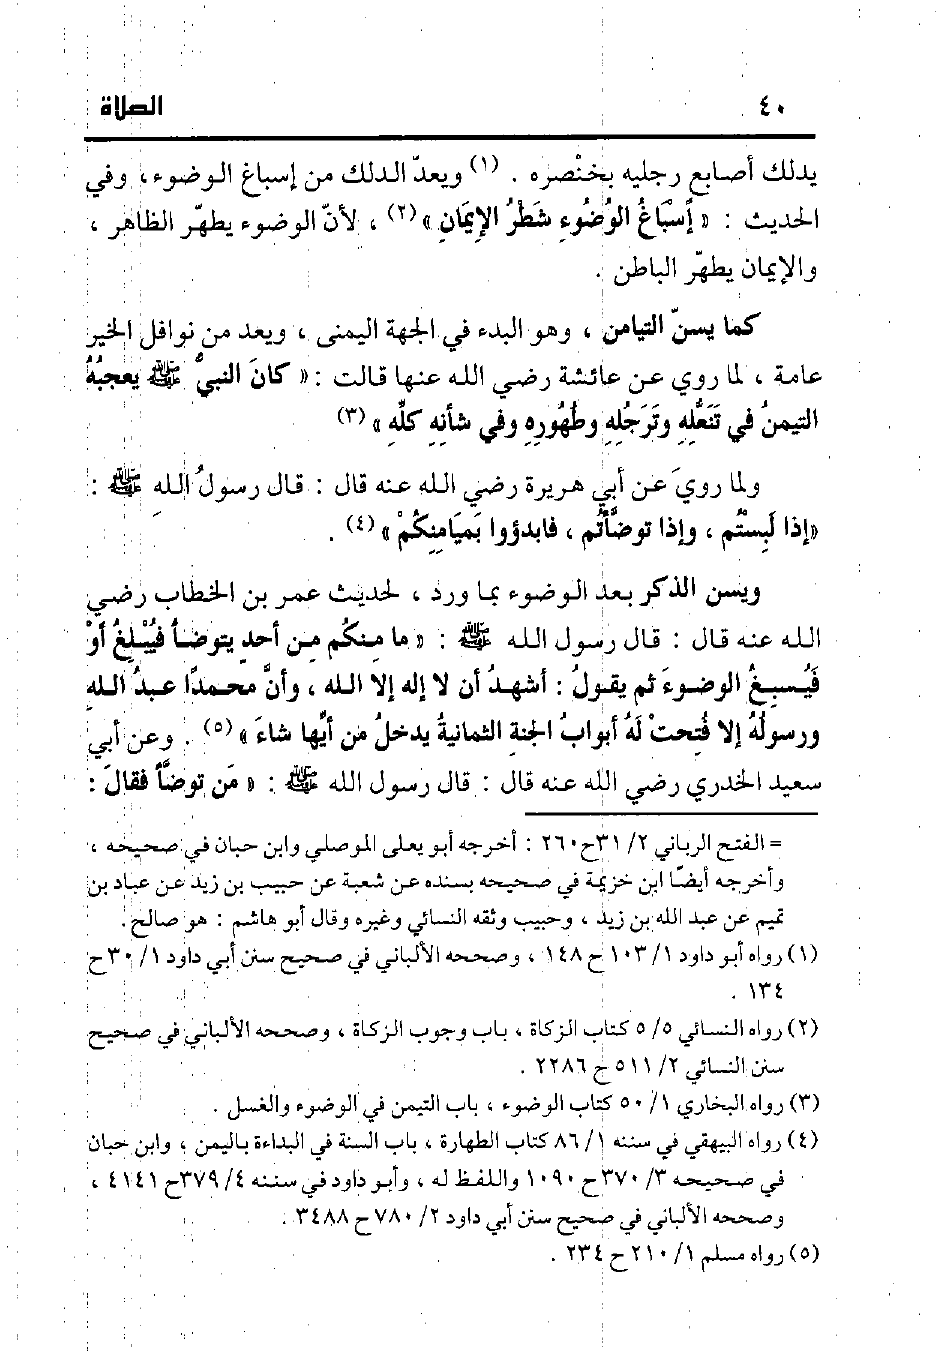 ٤٠ الصلاة
يدلك أصابع رجليه بخنْصره . (١) ويعدّ الدلك من إسباغ الوضوء، وفي
الحديث : « إِسْبَاغُ الوُضُوءِ شَطْرُ الإِيمَانِ » (٢) ، لأنّ الوضوء يطهّر الظاهر ،
والإيمان يطهّر الباطن .
كما يسنّ التيامن ، وهو البدء في الجهة اليمنى ، ويعد من نوافل الخير
عامة ، لما روي عن عائشة رضي الله عنها قالت : « كانَ النبيُّ ﷺ يعجبُهُ
التيمنُ في تَنَعُّلِهِ وتَرَجُّلِهِ وطُهُورِهِ وفي شأنِهِ كلِّهِ » (٣)
ولما رويَ عن أبي هريرة رضي الله عنه قال : قال رسولُ اللهِ ﷺ :
«إذا لَبِسْتُم ، وإذا توضَّأْتُم ، فابدؤوا بَميَامِنِكُمْ » (٤) .
ويسن الذكر بعد الوضوء بما ورد ، لحديث عمر بن الخطاب رضي
الله عنه قال : قال رسول الله ﷺ : « ما مِنكُم مِن أحدٍ يتوضأُ فيُبْلِغُ أوْ
فَيُسبغُ الوضوءَ ثم يقولُ : أشهدُ أن لا إله إلا الله ، وأنَّ محمدًا عبدُ اللهِ
ورسولُهُ إلا فُتِحتْ لَهُ أبوابُ الجنةِ الثمانيةُ يدخلُ مِن أيِّها شاءَ » (٥) . وعن أبي
سعيد الخدري رضي الله عنه قال : قال رسول الله ﷺ : « مَن توضَّأَ فقالَ :
= الفتح الرباني ٢/ ٣١ح٢٦٠ : أخرجه أبو يعلى الموصلي وابن حبان في صحيحه ،
وأخرجه أيضًا ابن خزيمة في صحيحه بسنده عن شعبة عن حبيب بن زيد عن عباد بن
تميم عن عبد الله بن زيد ، وحبيب وثقه النسائي وغيره وقال أبو هاشم : هو صالح .
(١) رواه أبو داود ١/ ١٠٣ ح ١٤٨ ، وصححه الألباني في صحيح سنن أبي داود ١/ ٣٠ح
١٣٤ .
(٢) رواه النسائي ٥/ ٥ كتاب الزكاة ، باب وجوب الزكاة ، وصححه الألباني في صحيح
سنن النسائي ٢/ ٥١١ ح ٢٢٨٦ .
(٣) رواه البخاري ١/ ٥٠ كتاب الوضوء ، باب التيمن في الوضوء والغسل .
(٤) رواه البيهقي في سننه ١/ ٨٦ كتاب الطهارة ، باب السنة في البداءة باليمن ، وابن حبان
في صحيحه ٣/ ٣٧٠ح ١٠٩٠ واللفظ له ، وأبو داود في سننه ٤/ ٣٧٩ح ٤١٤١ ،
وصححه الألباني في صحيح سنن أبي داود ٢/ ٧٨٠ ح ٣٤٨٨ .
(٥) رواه مسلم ١/ ٢١٠ح ٢٣٤ .